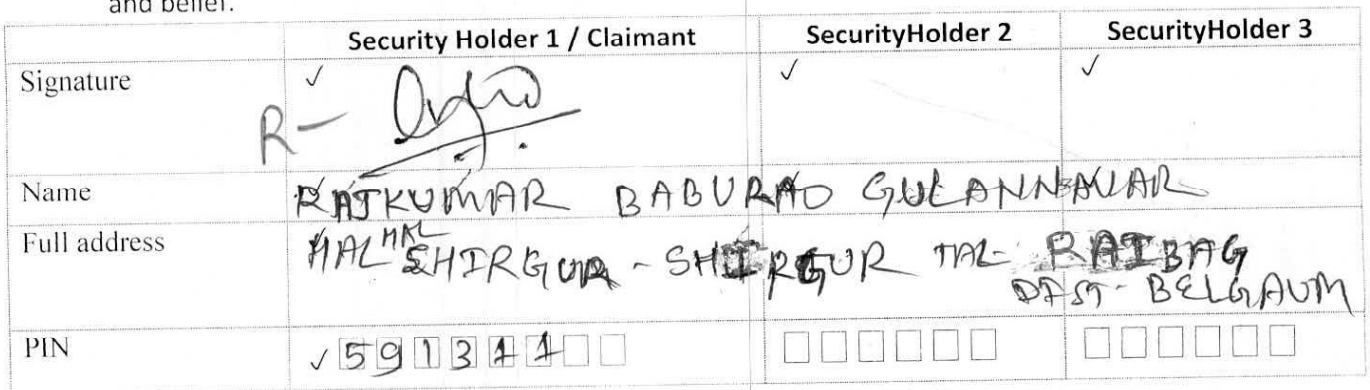 and belief.
Security Holder 1 / Claimant SecurityHolder 2 SecurityHolder 3
Signature ✓ ✓ ✓
R-
Name RAJKUMAR BABURAO GULANNAVAR
Full address HAL HAL SHIRGUR - SHIRGUR TAL- RAIBAG
DIST- BELGAUM
PIN ✓ 591311